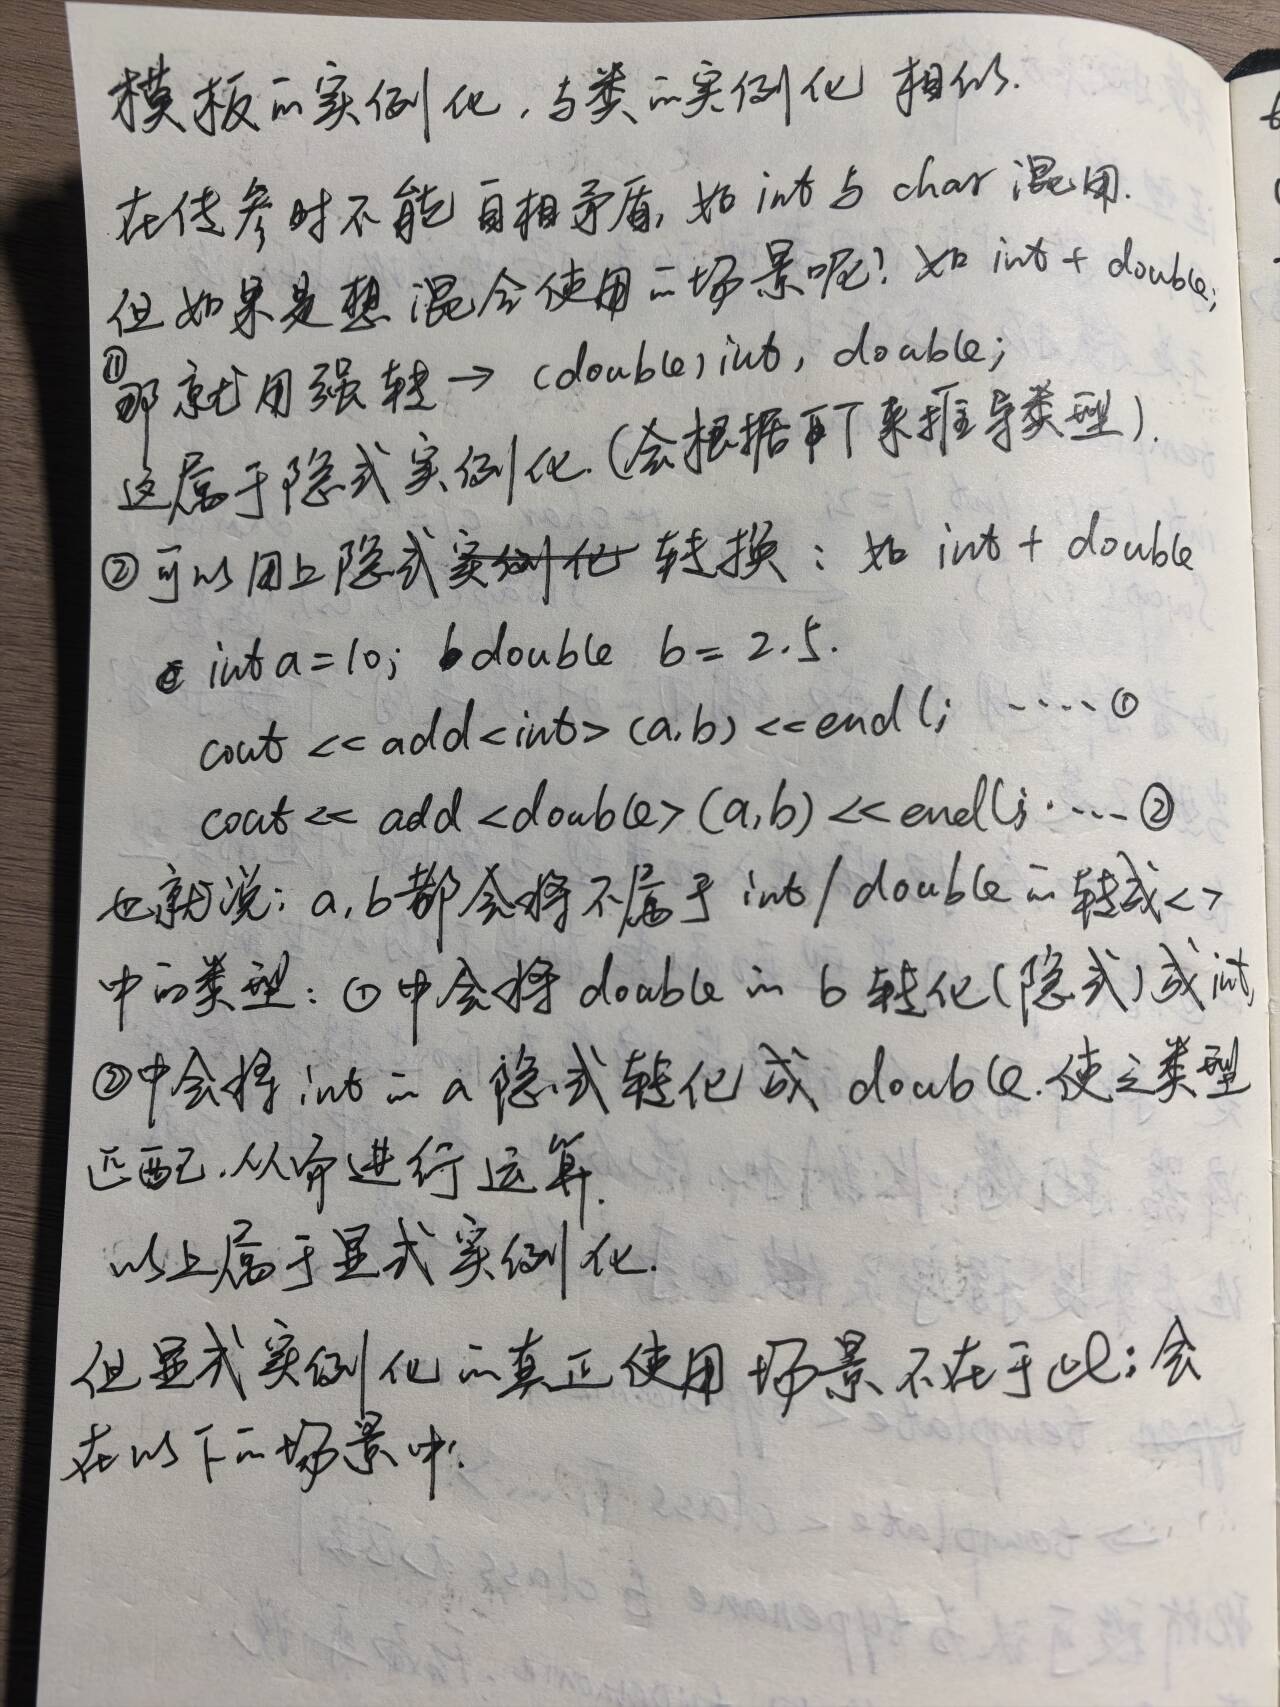 模板的实例化,与类的实例化 相似.
在传参时不能自相矛盾,如int与char混用.
但如果是想混合使用的场景呢?如int+double;
①那就用强转→(double)int, double;
这属于隐式实例化.(会根据T来推导类型).
②可以用上隐式实例化转换:如int+double
int a=10; double b=2.5.
cout<<add<int>(a,b)<<endl; ·····①
cout<<add<double>(a,b)<<endl; ····②
也就说:a,b都会将不属于int/double的转成<>
中的类型:①中会将double的b转化(隐式)成int,
②中会将int的a隐式转化成double.使之类型
匹配.从而进行运算.
以上属于显式实例化.
但显式实例化的真正使用场景不在于此;会
在以下的场景中: